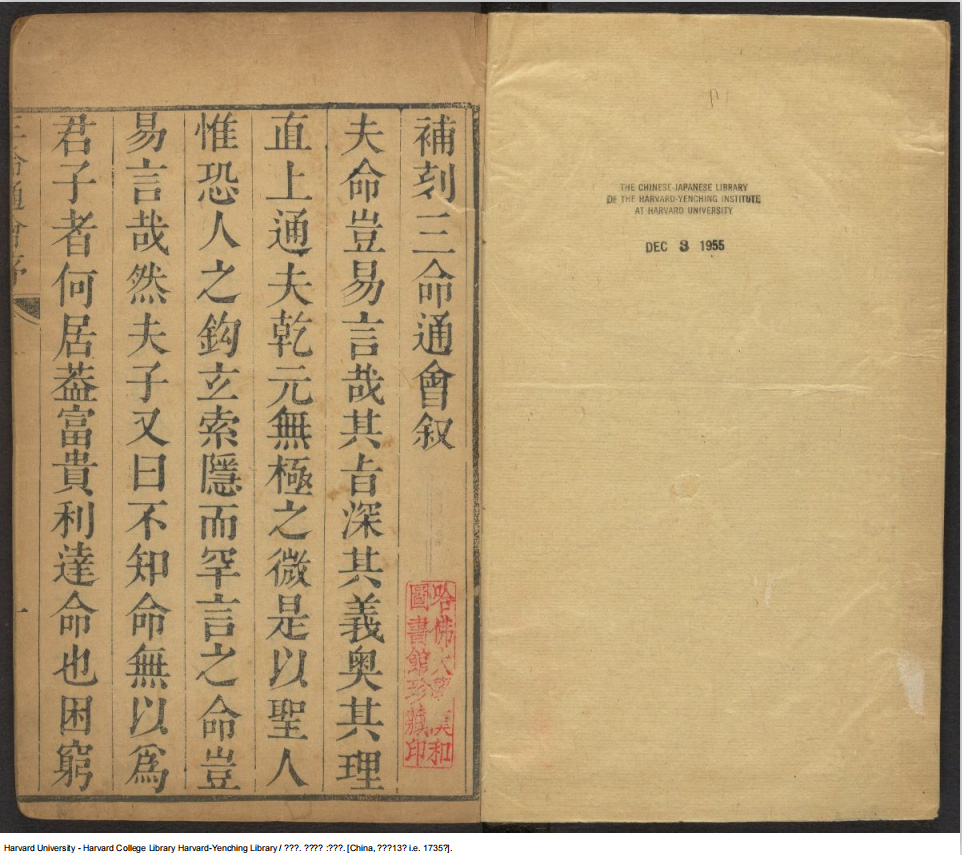 THE CHINESE-JAPANESE LIBRARY
OF THE HARVARD-YENCHING INSTITUTE
AT HARVARD UNIVERSITY
DEC 8 1955
補刻三命通會叙
哈佛大學漢和
圖書館珍藏印
夫命豈易言哉其㫖深其義奥其理
直上通夫乾元無極之微是以聖人
惟恐人之鈎玄索隱而罕言之命豈
易言哉然夫子又曰不知命無以爲
君子者何居葢富貴利達命也困窮
三命通會序
一
Harvard University - Harvard College Library Harvard-Yenching Library / ???. ???? :???. [China, ???13? i.e. 1735?].